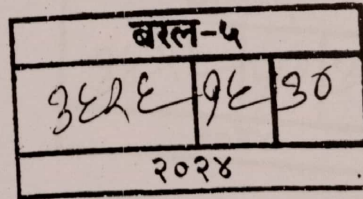 बरल-५
३६२६ १६ ३०
२०२४